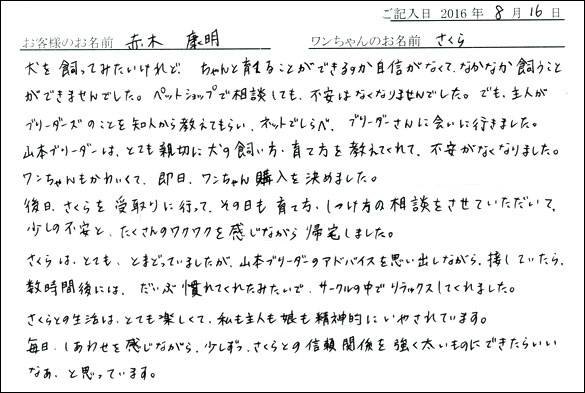 ご記入日 2016 年 8 月 16 日
お客様のお名前 赤木 康明 ワンちゃんのお名前 さくら
犬を飼ってみたいけれど、ちゃんと育てることができるか自信がなくて、なかなか飼うこと
ができませんでした。ペットショップで相談しても、不安はなくなりませんでした。でも、主人が
ブリーダーズのことを知人から教えてもらい、ネットでしらべ、ブリーダーさんに会いに行きました。
山本ブリーダーは、とても親切に犬の飼い方・育て方を教えてくれて、不安がなくなりました。
ワンちゃんもかわいくて、即日、ワンちゃん購入を決めました。
後日、さくらを受取りに行って、その日も育て方・しつけ方の相談をさせていただいて、
少しの不安と、たくさんのワクワクを感じながら帰宅しました。
さくらは、とても、とまどっていましたが、山本ブリーダーのアドバイスを思い出しながら、接していたら、
数時間後には、だいぶ慣れてくれたみたいで、サークルの中でリラックスしてくれました。
さくらとの生活は、とても楽しくて、私も主人も娘も精神的にいやされています。
毎日、しあわせを感じながら、少しずつ、さくらとの信頼関係を強く太いものにできたらいい
なあ、と思っています。